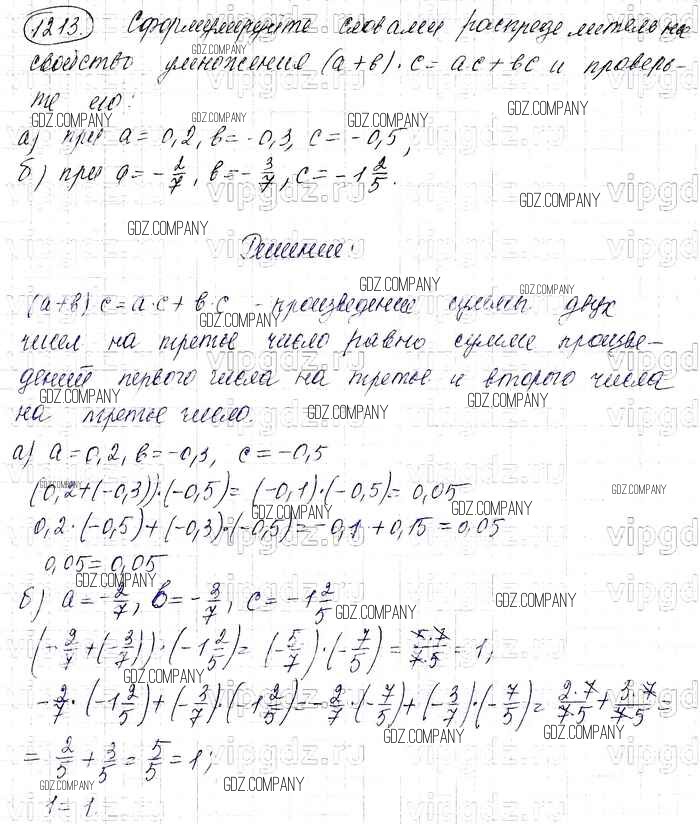 1213. Сформулируйте словами распределительное
свойство умножения (a+в)·c=ac+вc и проверь-
те его:
а) при a=0,2, в=-0,3, c=-0,5;
б) при a=-2/7, в=-3/7, c=-1 2/5.
Решение:
(a+в)·c=a·c+в·c - произведение суммы двух
чисел на третье число равно сумме произве-
дений первого числа на третье и второго числа
на третье число.
а) a=0,2, в=-0,3, c=-0,5
(0,2+(-0,3))·(-0,5)=(-0,1)·(-0,5)=0,05
0,2·(-0,5)+(-0,3)·(-0,5)=-0,1+0,15=0,05
0,05=0,05
б) a=-2/7, в=-3/7, c=-1 2/5
(-2/7+(-3/7))·(-1 2/5)=(-5/7)·(-7/5)=5·7/7·5=1;
-2/7·(-1 2/5)+(-3/7)·(-1 2/5)=-2/7·(-7/5)+(-3/7)·(-7/5)=2·7/7·5+3·7/7·5=
=2/5+3/5=5/5=1;
1=1.
GDZ.COMPANY
vipgdz.ru